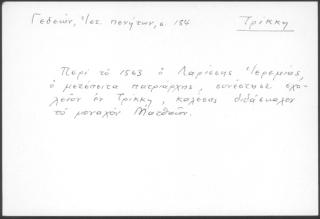 Γεδεών, Ἱστ. πενήτων, σ. 184 Τρίκκη
Περὶ τὸ 1563 ὁ Λαρίσσης Ἱερεμίας,
ὁ μετέπειτα πατριάρχης, συνέστησε σχο-
λεῖον ἐν Τρίκκῃ, καλέσας διδάσκαλον
τὸ μοναχὸν Ματθαῖον.